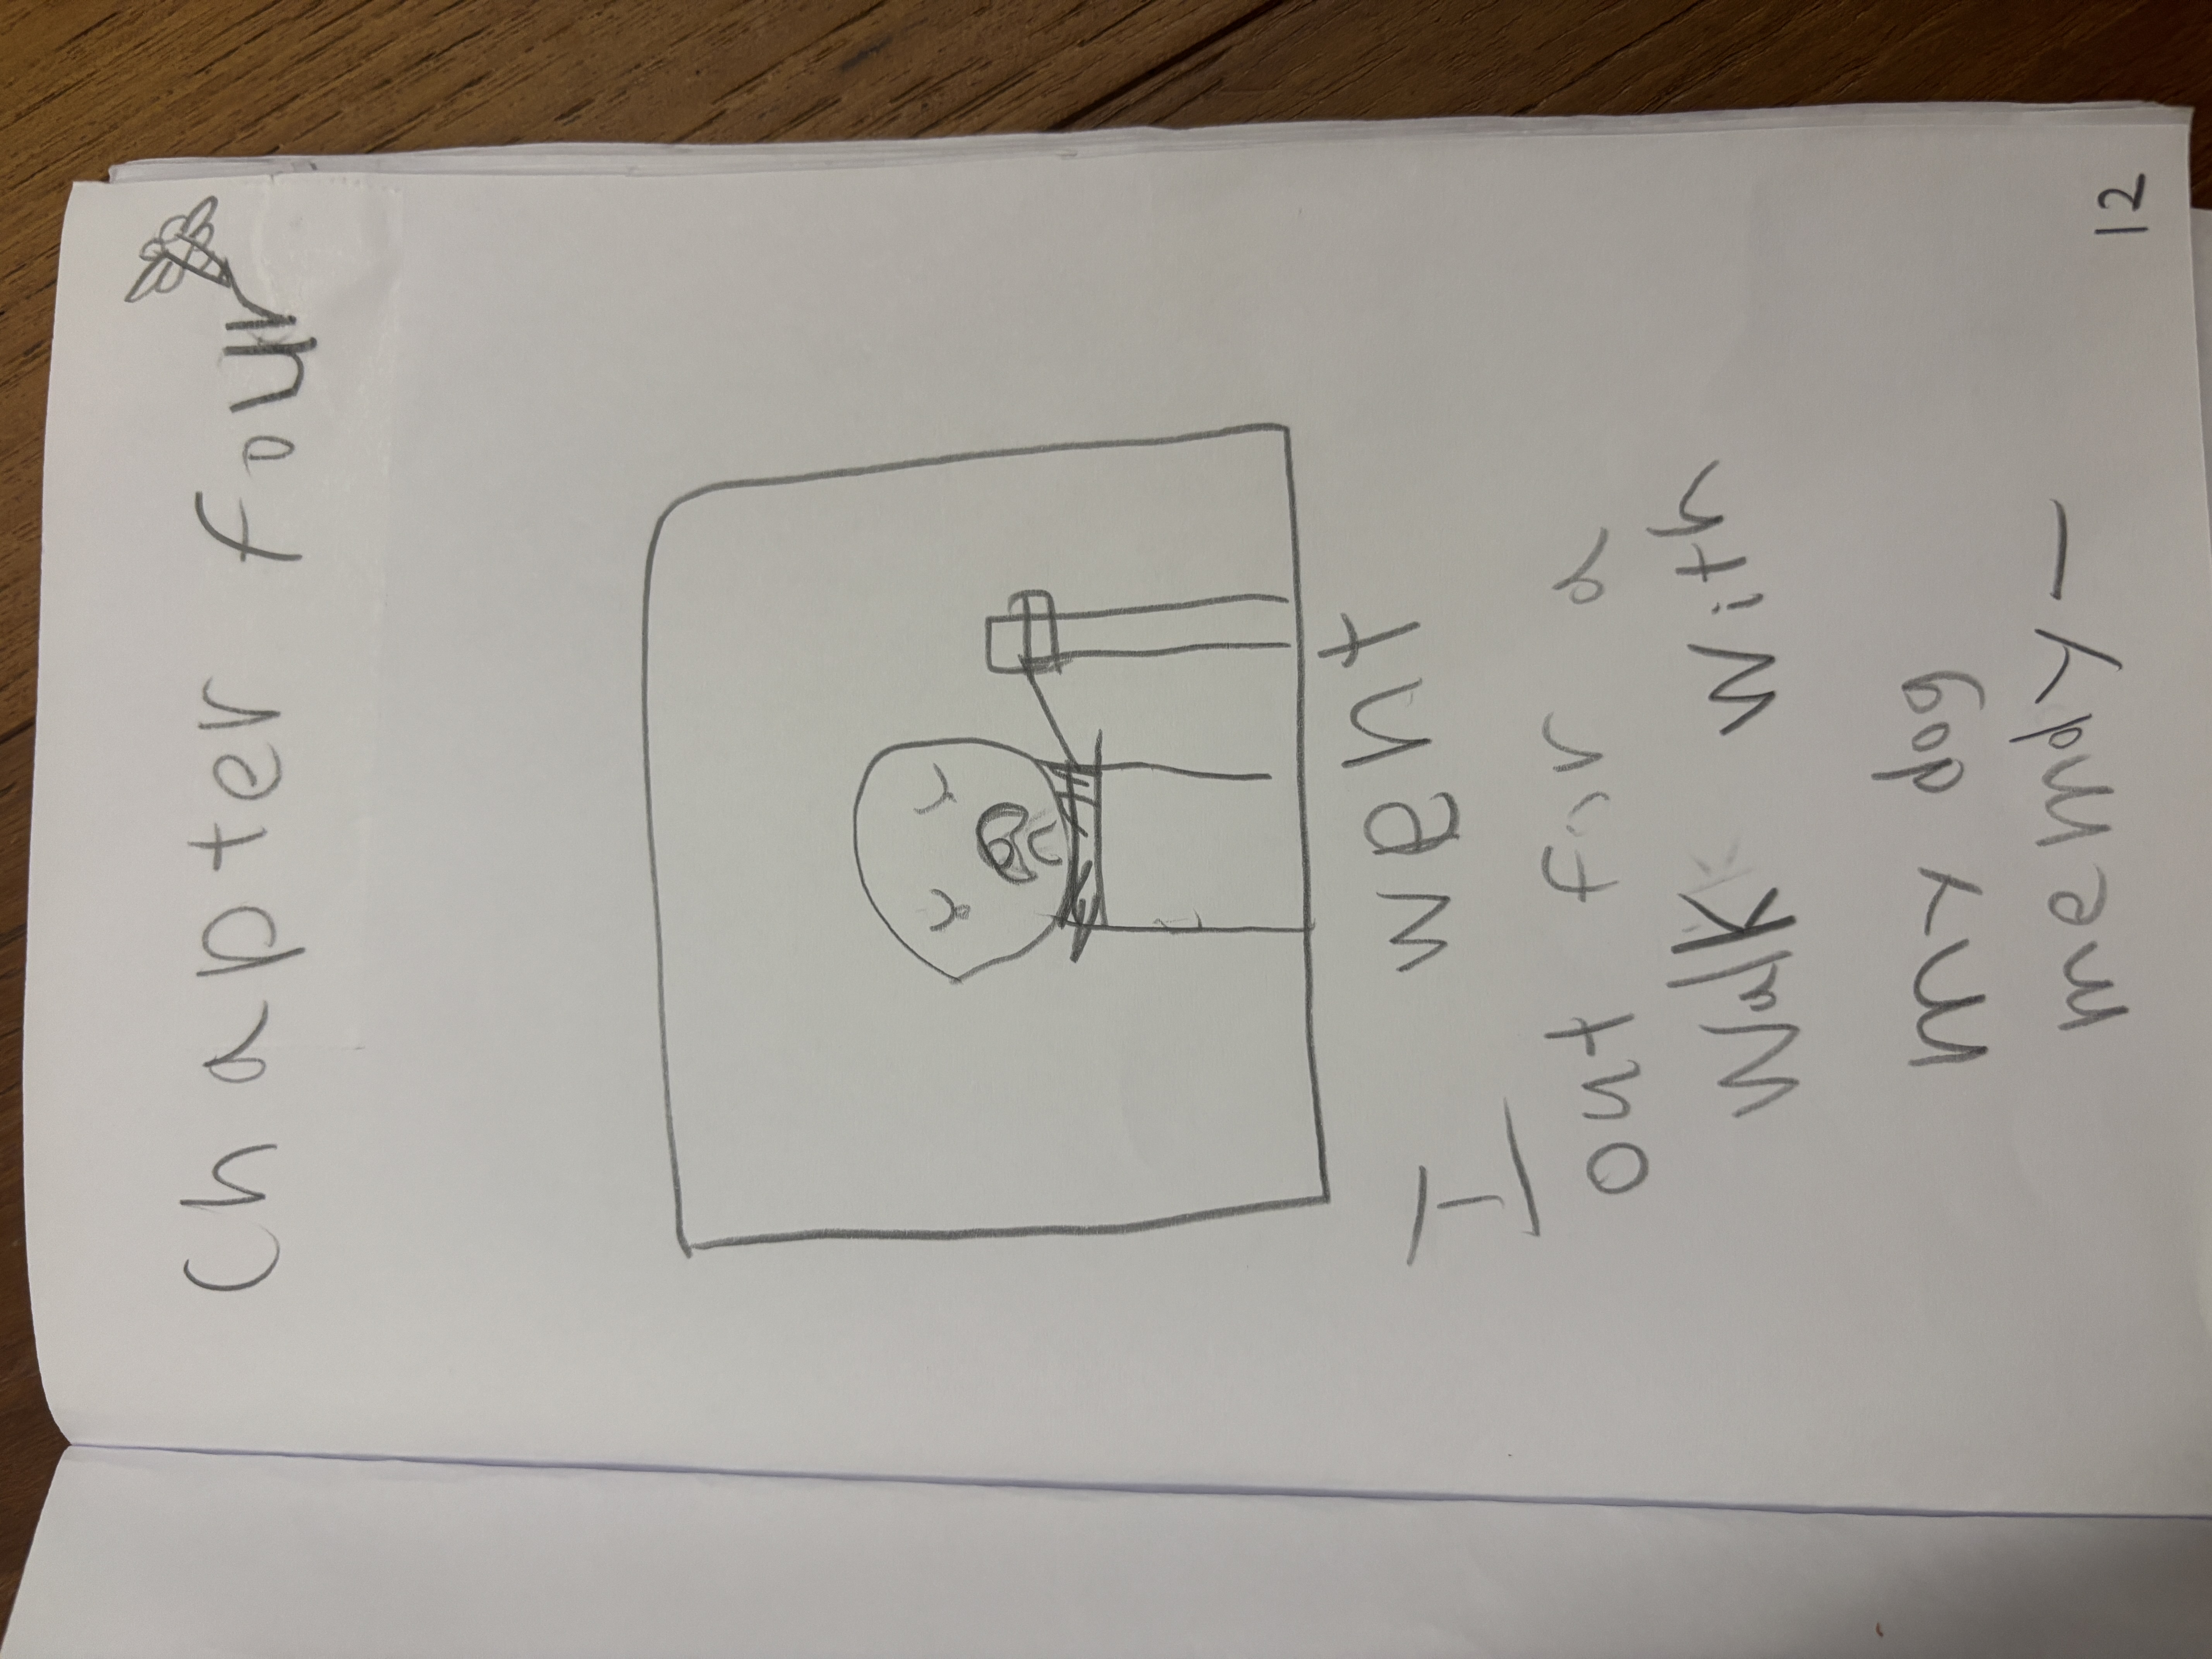 Chapter four
I went
out for a
Walk with
my dog
memdy—
12